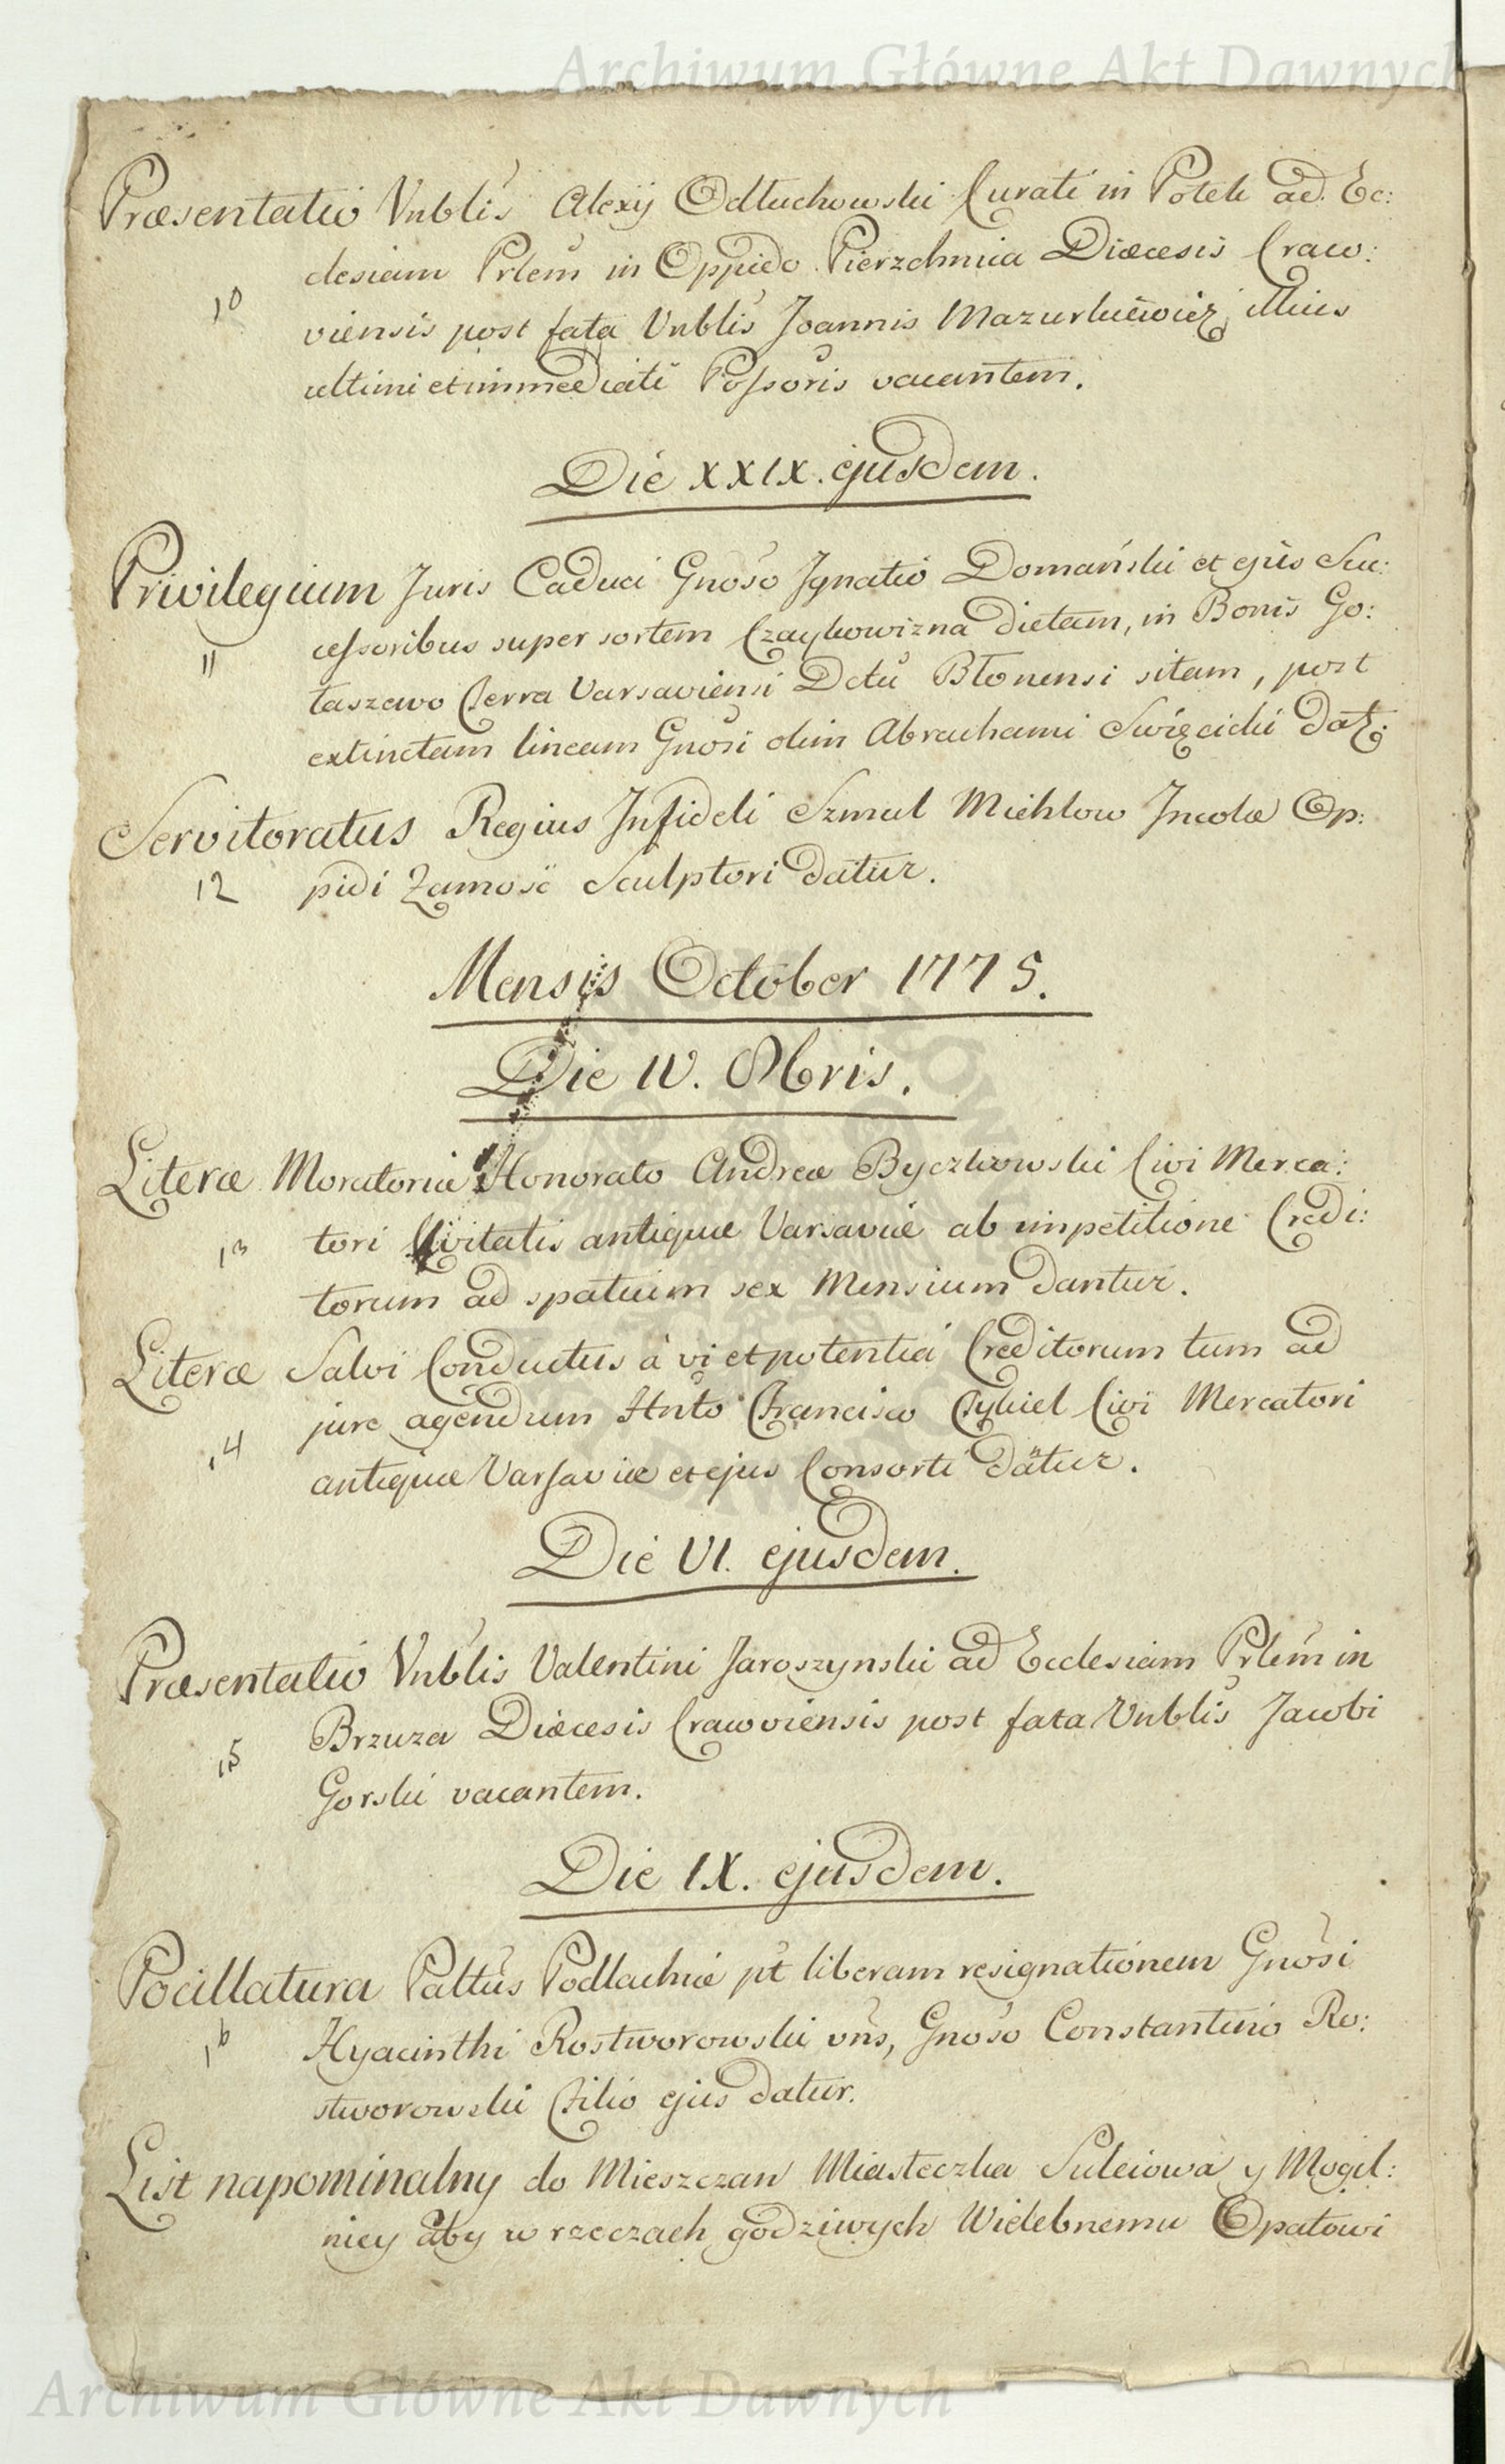 Archiwum Główne Akt Dawnych
Præsentatio Vnblis Alexij Odłuchowski Curati in Potok ad Ec:
clesiam Prlem in Oppido Pierzchnica Diæcesis Craco:
10
viensis post fata Vnblis Joannis Mazurkiewicz illius
ultimi et immediati Possoris vacantem.
Die XXIX. ejusdem.
Privilegium Juris Caduci Gnoso Ignatio Domański et ejus Suc:
cessoribus super sortem Czaykowizna dictam, in Bonis Go:
11
taszewo Terra Varsaviensi Dctu Błonensi sitam, post
extinctam lineam Gnosi olim Abrahami Święcicki datz.
Servitoratus Regius Infideli Szmul Michlow Incolæ Op:
12 pidi Zamość Sculptori datur.
Mensis October 1775.
Die IV. 8bris.
Literæ Moratoriæ Honorato Andreæ Byczkowski Civi Merca:
13 tori Civitatis antiquæ Varsaviæ ab impetitione Credi:
torum ad spatium sex Mensium dantur.
Literæ Salvi Conductus à vi et potentia Creditorum tum ad
jure agendum Hnto Francisco Cykiel Civi Mercatori
14
antiquæ Varsaviæ et ejus Consorti datur.
Die VI. ejusdem.
Præsentatio Vnblis Valentini Jaroszynski ad Ecclesiam Prlem in
Brzuza Diæcesis Cracoviensis post fata Vnblis Jacobi
15
Gorski vacantem.
Die IX. ejusdem.
Pocillatura Pallus Podlachiæ pt liberam resignationem Gnosi
16 Hyacinthi Rostworowski vns, Gnoso Constantino Ro:
stworowski Filio ejus datur.
List napominalny do Mieszczan Miasteczka Suleiowa y Mogil:
nicy aby w rzeczach godziwych Wielebnemu Opatowi
Archiwum Główne Akt Dawnych